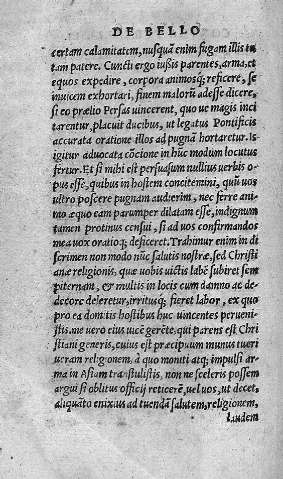 DE BELLO
certam calamitatem, nusquã enim fugam illis tu
tam patere. Cuncti ergo iussis parentes, arma, et
equos expedire, corpora animosq; reficere, se
inuicem exhortari, finem malorũ adesse dicere,
si eo prælio Persas uincerent, quo ue magis inci
tarentur, placuit ducibus, ut legatus Pontificis
accurata oratione illos ad pugnã hortaretur. Is
igitur aduocata cõcione in hũc modum locutus
fertur. Et si mihi est persuasum nullius uerbis o-
pus esse, quibus in hostem concitemini, qui uos
ultro poscere pugnam audierim, nec ferre ani-
mo æquo eam parumper dilatam esse, indignum
tamen protinus censui, si ad uos confirmandos
mea uox oratioq; deficeret. Trahimur enim in di
scrimen non modo nũc salutis nostræ, sed Christi
anæ religionis, quæ uobis uictis labẽ subiret sem
piternam, & multis in locis cum damno ac de-
decore deleretur, irritusq; fieret labor, ex quo
pro ea domitis hostibus huc uincentes perueni-
stis. me uero eius uicẽ gerẽte, qui parens est Chri
stiani generis, cuius est præcipuum munus tueri
ueram religionem, à quo moniti atq; impulsi ar
ma in Asiam transtulistis, non ne sceleris possem
argui si oblitus officij reticerẽ, uel uos, ut decet,
aliquãto enixius ad tuendã salutem, religionem,
laudem